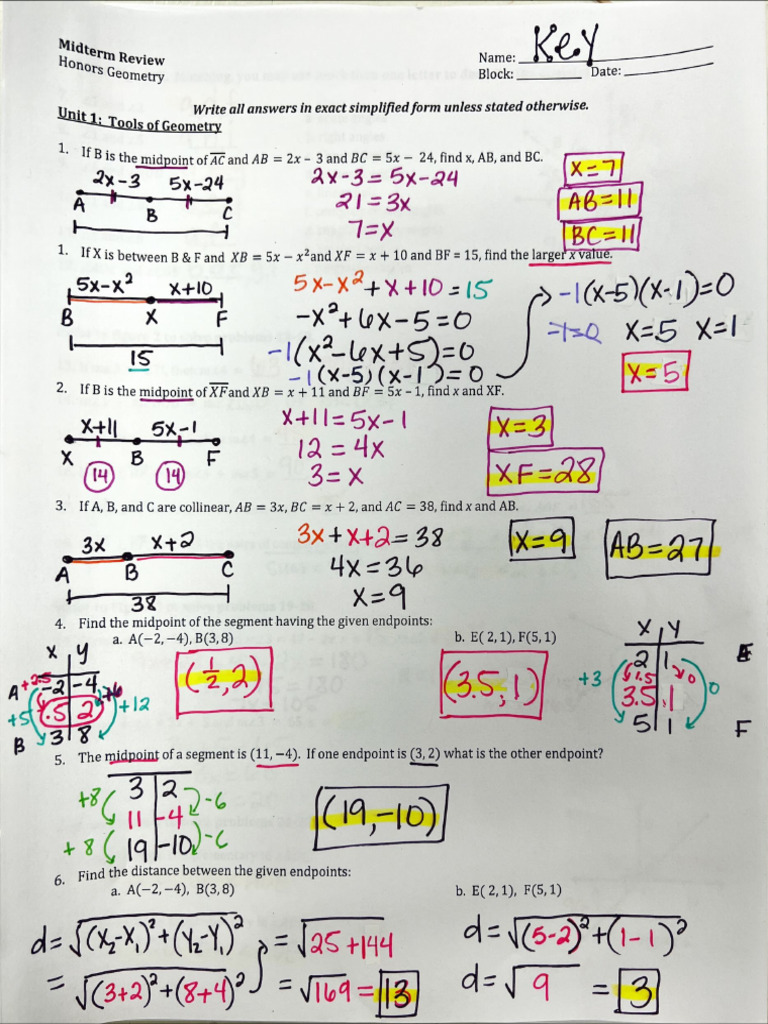 Midterm Review
Honors Geometry
Name: Key
Block: Date:
Write all answers in exact simplified form unless stated otherwise.
Unit 1: Tools of Geometry
1. If B is the midpoint of AC and AB = 2x – 3 and BC = 5x – 24, find x, AB, and BC.
2x-3 5x-24
A B C
2x-3 = 5x-24
21 = 3x
7 = x
x = 7
AB = 11
BC = 11
1. If X is between B & F and XB = 5x − x² and XF = x + 10 and BF = 15, find the larger x value.
5x-x² x+10
B X F
15
5x-x² + x+10 = 15
-x²+6x-5=0
-1(x²-6x+5)=0
-1(x-5)(x-1)=0
-1(x-5)(x-1)=0
-1=0 x=5 x=1
x=5
2. If B is the midpoint of XF and XB = x + 11 and BF = 5x - 1, find x and XF.
x+11 5x-1
X B F
14 14
x+11 = 5x-1
12 = 4x
3 = x
x=3
XF=28
3. If A, B, and C are collinear, AB = 3x, BC = x + 2, and AC = 38, find x and AB.
3x x+2
A B C
38
3x+x+2=38
4x=36
x=9
x=9
AB=27
4. Find the midpoint of the segment having the given endpoints:
a. A(−2, −4), B(3, 8) b. E( 2, 1), F(5, 1)
x y
A +2.5 -2 -4 +6
+5 .5 2 +12
B 3 8
(1/2, 2)
(3.5, 1)
x y
2 1 E
+3 1.5 0
3.5 1 0
5 1 F
5. The midpoint of a segment is (11, −4). If one endpoint is (3, 2) what is the other endpoint?
3 2
+8 -6
11 -4
+8 -6
19 -10
(19, -10)
6. Find the distance between the given endpoints:
a. A(−2, −4), B(3, 8) b. E( 2, 1), F(5, 1)
d=√(x₂-x₁)²+(y₂-y₁)²
=√(3+2)²+(8+4)²
=√25+144
=√169 = 13
d=√(5-2)²+(1-1)²
d=√9 = 3